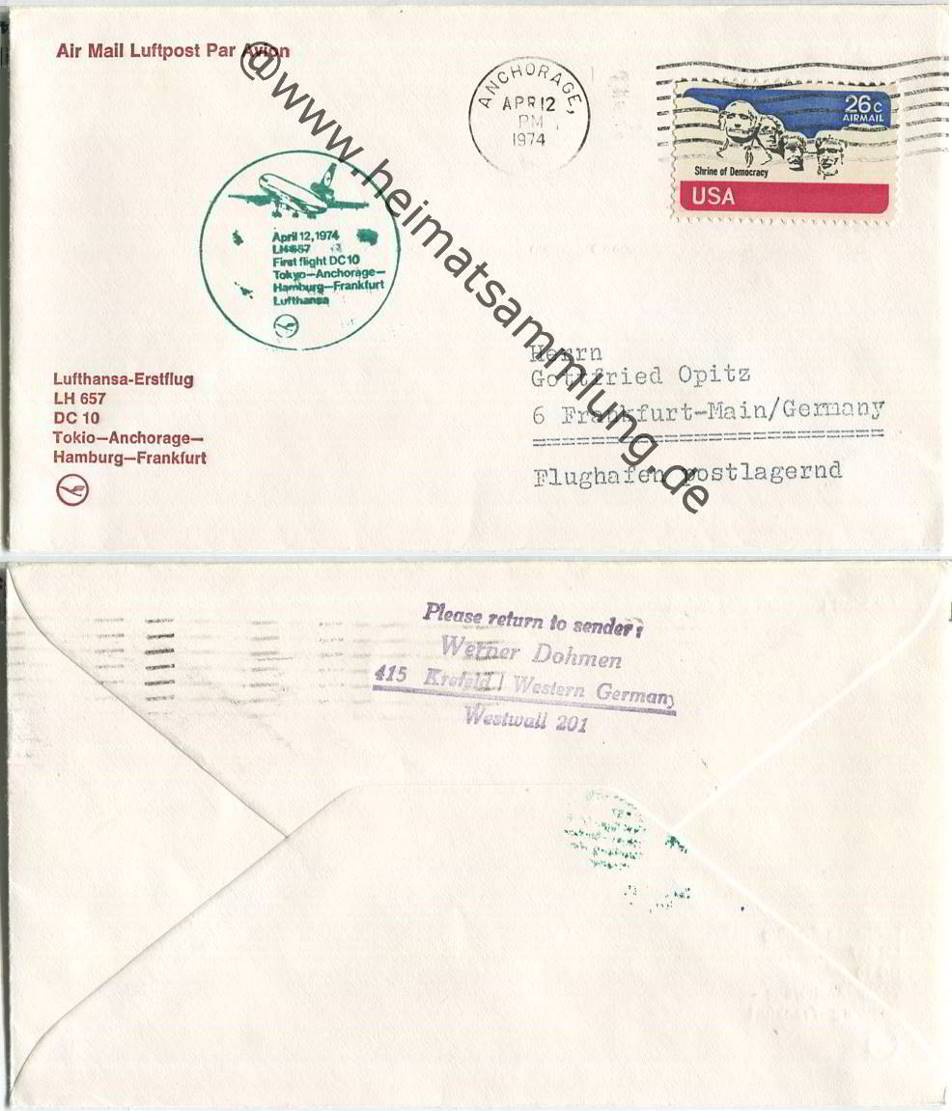 Air Mail Luftpost Par Avion
@www.heimatsammlung.de
ANCHORAGE,
APR 12
PM
1974
26c
AIRMAIL
Shrine of Democracy
USA
April 12, 1974
LH 657
First flight DC 10
Tokyo—Anchorage—
Hamburg—Frankfurt
Lufthansa
Herrn
Gottfried Opitz
6 Frankfurt-Main/Germany
Flughafen postlagernd
Lufthansa-Erstflug
LH 657
DC 10
Tokio—Anchorage—
Hamburg—Frankfurt
Please return to sender:
Werner Dohmen
415 Krefeld / Western Germany
Westwall 201